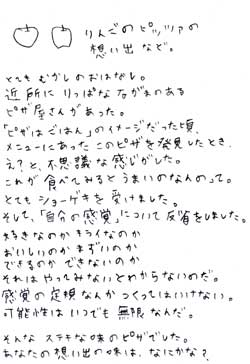 りんごのピッツァの
想い出など。
とてもむかしのおはなし。
近所にりっぱなながまのある
ピザ屋さんがあった。
「ピザはごはん」のイメージだった頃、
メニューにあったこのピザを発見したとき、
え?と、不思議な感じがした。
これが食べてみるとうまいのなんのって。
とてもショーゲキを受けました。
そして、「自分の感覚」について反省をしました。
好きなのかキライなのか
おいしいのかまずいのか
できるのかできないのか
それはやってみないとわからないのだ。
感覚の定規なんかつくってはいけない。
可能性はいつでも無限なんだ。
そんなステキな味のピザでした。
あなたの想い出の味は、なにかな?